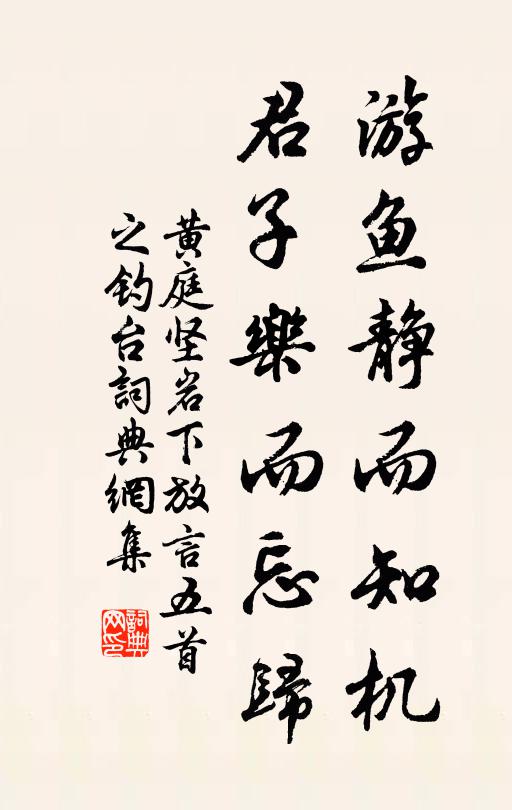 游鱼静而知机
君子樂而忘歸
黄庭坚岩下放言五首
之钓台詞典網集
詞典
网印